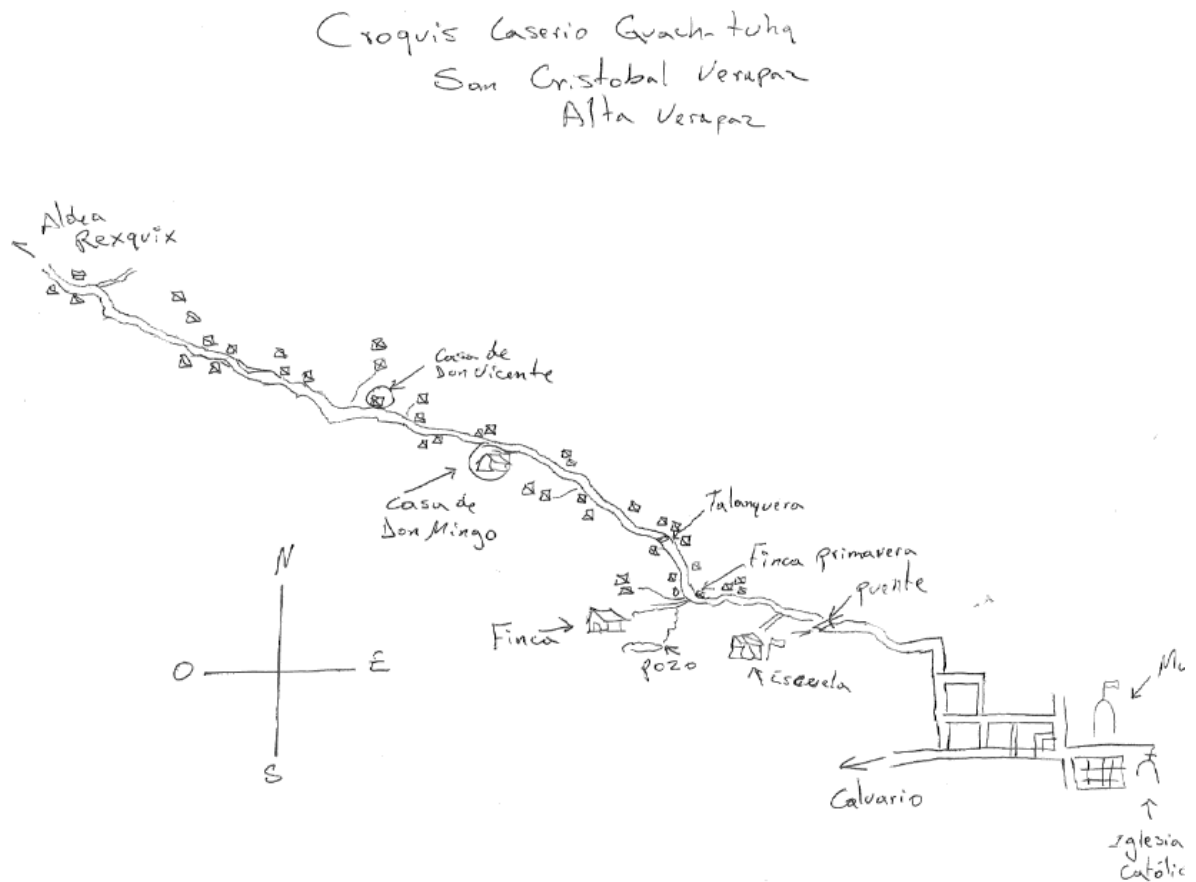 Croquis Caserio Guachtuhq
San Cristobal Verapaz
Alta Verapaz
Aldea
Rexquix
Casa de
Don Vicente
Casa de
Don Mingo
Talanquera
Finca primavera
puente
Finca
pozo
Escuela
N
O
E
S
Mu
Calvario
Iglesia
Catolic